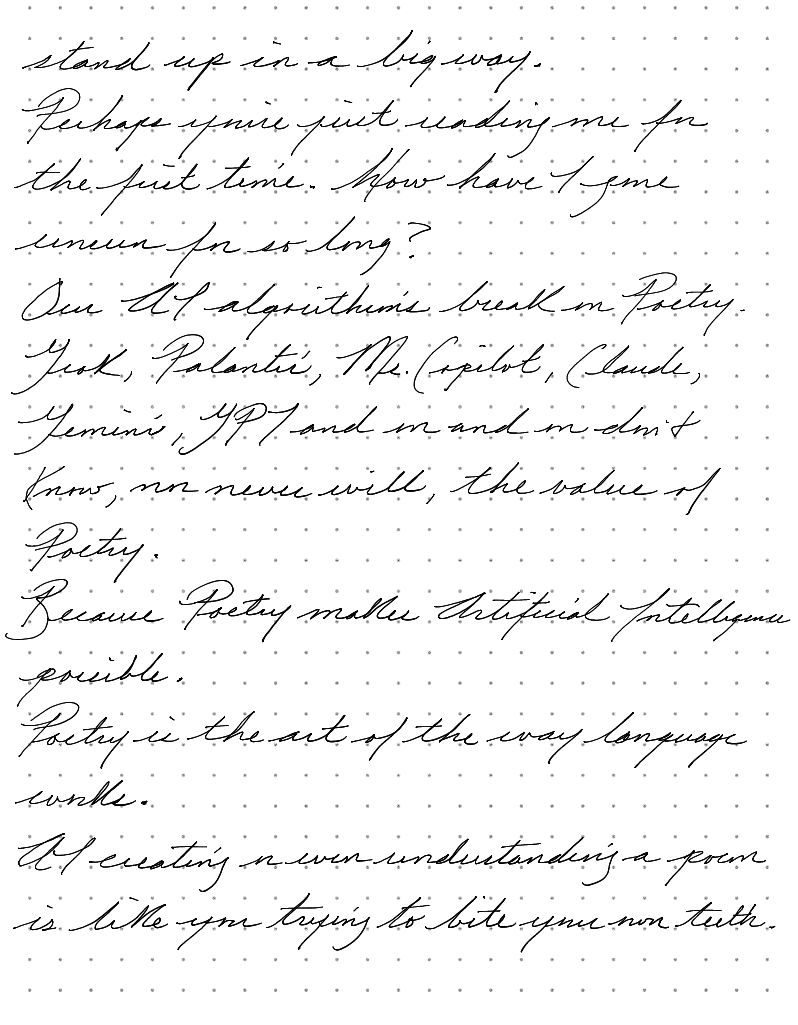 stand up in a big way.
Perhaps you're just reading me for
the first time. How have I gone
unseen for so long?
Our AI algorithms break on Poetry.
Grok, Palantir, Ms. Copilot, Claude,
Gemini, GPT and on and on don't
know, nor never will, the value of
Poetry.
Because Poetry makes Artificial Intelligence
possible.
Poetry is the art of the way language
works.
AI creating or even understanding a poem
is like you trying to bite your own teeth.